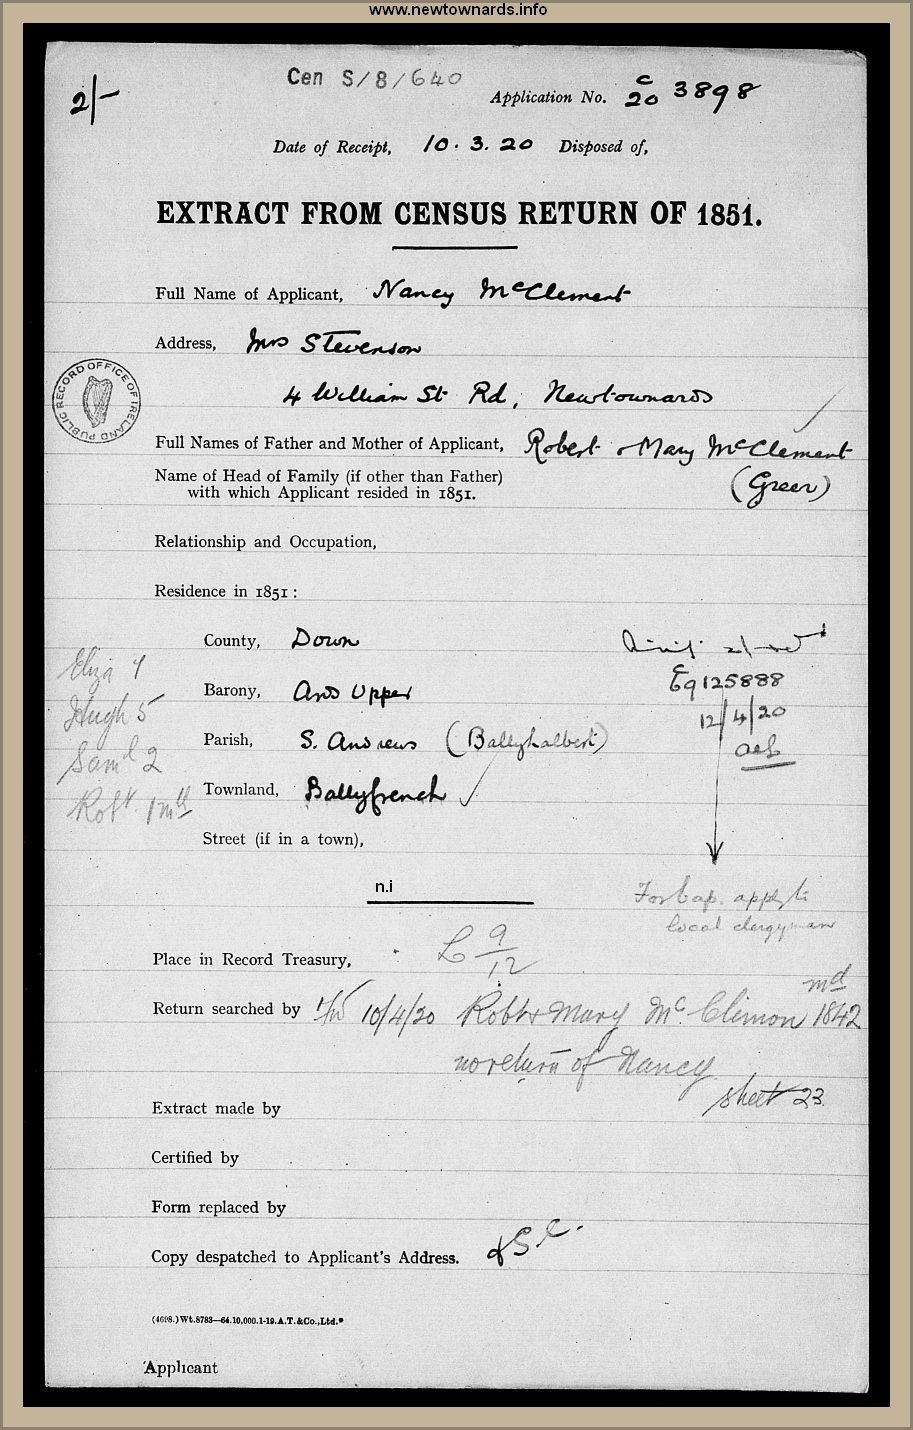 www.newtownards.info
2/-
Cen S/8/640
Application No. C/20 3898
Date of Receipt, 10.3.20 Disposed of,
EXTRACT FROM CENSUS RETURN OF 1851.
Full Name of Applicant, Nancy McClement
Address, Mrs Stevenson
4 William St Rd, Newtownards
PUBLIC RECORD OFFICE OF IRELAND
Full Names of Father and Mother of Applicant, Robert & Mary McClement
Name of Head of Family (if other than Father)
with which Applicant resided in 1851.
(Greer)
Relationship and Occupation,
Residence in 1851:
County, Down
Barony, Ards Upper
E9125888
Eliza 7
Hugh 5
Saml 2
Robt 1 mth
12/4/20
Parish, S. Andrews (Ballyhalbert)
Townland, Ballyfrench
Street (if in a town),
n.i
For bap. apply to
local clergyman
Place in Record Treasury, L 9/12
Return searched by 10/4/20 Robt & Mary McClimon md 1842
no return of Nancy
sheet 23
Extract made by
Certified by
Form replaced by
Copy despatched to Applicant's Address.
(4698.)Wt.8783—64.10,000.1-19.A.T.&Co.,Ltd.
Applicant